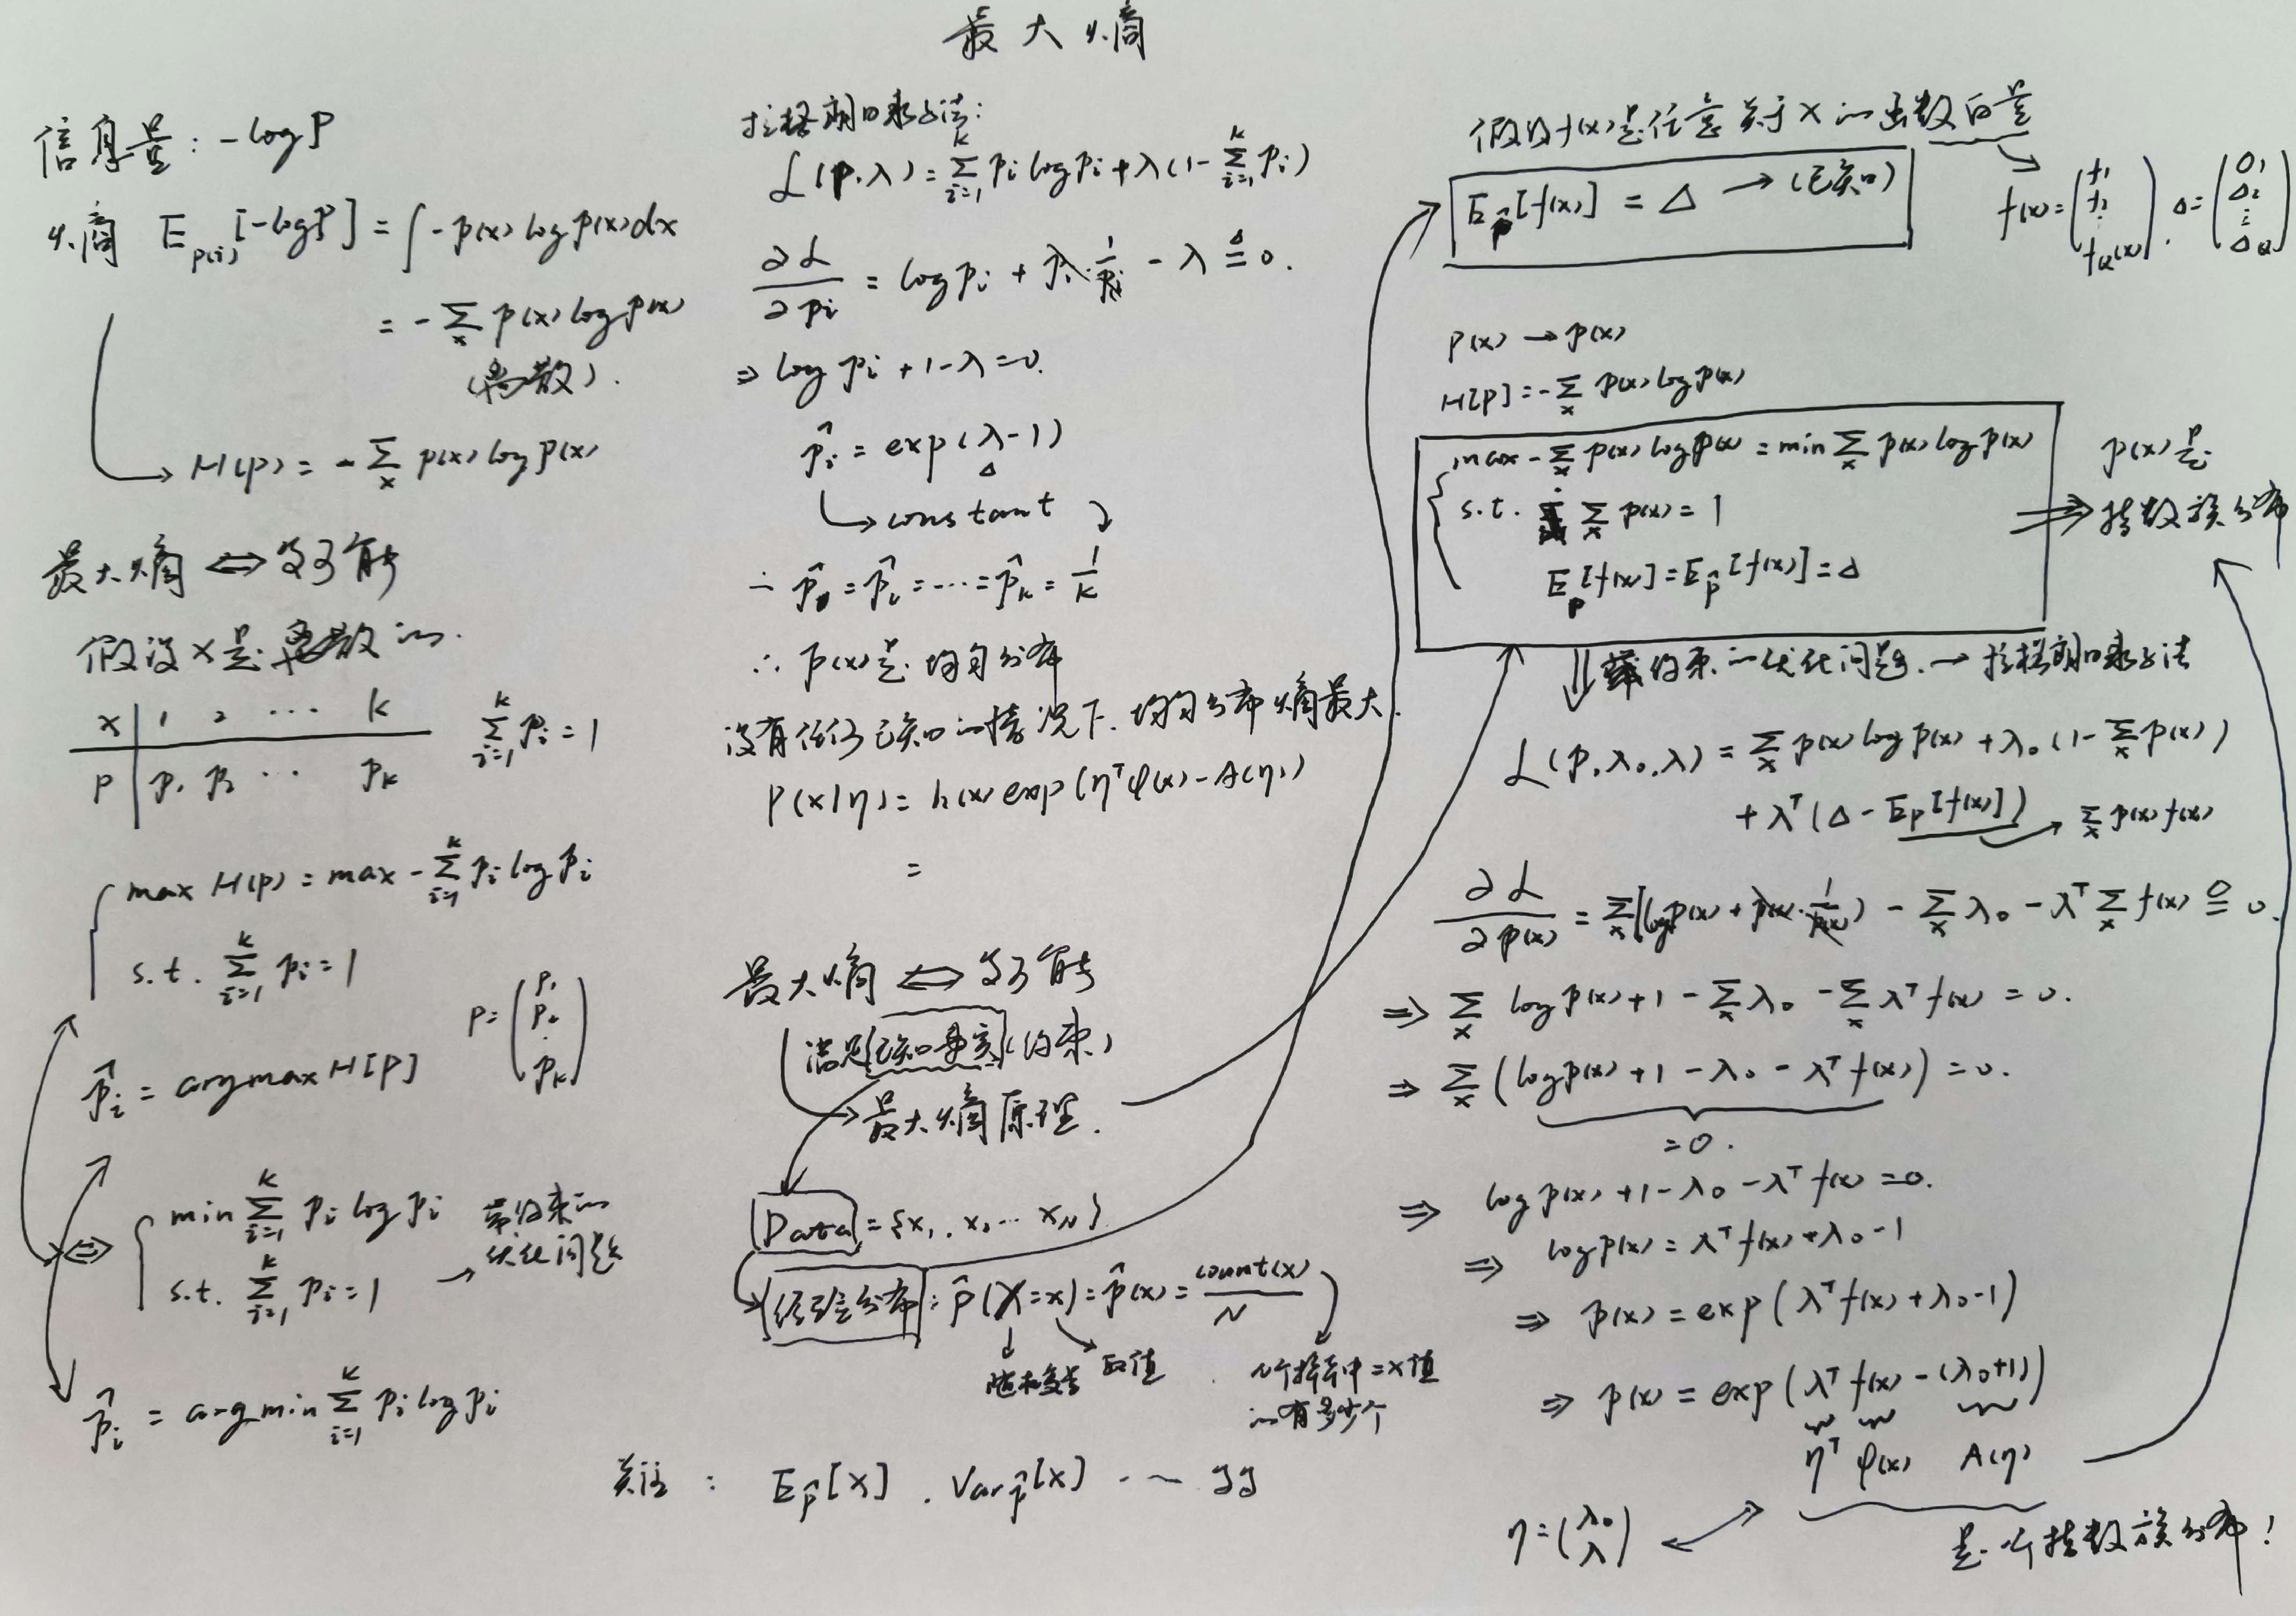 最大熵
信息量: -log p
熵 E_{p(x)}[-log p] = ∫ -p(x) log p(x) dx
= -∑_x p(x) log p(x)
(离散).
→ H(p) = -∑_x p(x) log p(x)
最大熵 ⇔ 等可能
假设x是离散的.
x | 1 2 ··· k
p | p₁ p₂ ··· p_k
∑_{i=1}^k p_i = 1
max H(p) = max -∑_{i=1}^k p_i log p_i
s.t. ∑_{i=1}^k p_i = 1
p = (p₁ p₂ ⋮ p_k)
p̂_i = argmax H[p]
⇔ min ∑_{i=1}^k p_i log p_i
s.t. ∑_{i=1}^k p_i = 1 →
带约束的
优化问题
p̂_i = argmin ∑_{i=1}^k p_i log p_i
拉格朗日乘子法:
L(p,λ) = ∑_{i=1}^k p_i log p_i + λ(1-∑_{i=1}^k p_i)
∂L/∂p_i = log p_i + p_i·1/p_i - λ ≜ 0.
⇒ log p_i + 1 - λ = 0.
p̂_i = exp(λ-1)
→ constant
∴ p̂₁ = p̂₂ = ··· = p̂_k = 1/k
∴ p(x)是均匀分布
没有任何已知的情况下. 均匀分布熵最大.
P(x|η) = h(x) exp(η^T φ(x) - A(η))
=
最大熵 ⇔ 等可能
满足已知事实(约束)
→ 最大熵原理.
Data = {x₁, x₂ ··· x_N}
经验分布: p̂(X=x) = p̂(x) = count(x)/N
随机变量 取值
N个样本中=x值
的有多少个
关注: E_p̂[x] . Var_p̂[x] ···
假设f(x)是任意关于x的函数向量
E_p̂[f(x)] = Δ → (已知)
f(x) = (f₁ f₂ ⋮ f_Q(x)). Δ = (Δ₁ Δ₂ ⋮ Δ_Q)
P(x) → p(x)
H[p] = -∑_x p(x) log p(x)
max -∑_x p(x) log p(x) = min ∑_x p(x) log p(x)
s.t. ∑_x p(x) = 1
E_p[f(x)] = E_p̂[f(x)] = Δ
⇒ p(x)是
指数族分布
⇓ 带约束的优化问题. → 拉格朗日乘子法
L(p,λ₀,λ) = ∑_x p(x) log p(x) + λ₀(1-∑_x p(x))
+ λ^T(Δ - E_p[f(x)]) → ∑_x p(x) f(x)
∂L/∂p(x) = ∑_x (log p(x) + p(x)·1/p(x)) - ∑_x λ₀ - λ^T ∑_x f(x) ≜ 0.
⇒ ∑_x log p(x) + 1 - ∑_x λ₀ - ∑_x λ^T f(x) = 0.
⇒ ∑_x (log p(x) + 1 - λ₀ - λ^T f(x)) = 0.
= 0.
⇒ log p(x) + 1 - λ₀ - λ^T f(x) = 0.
⇒ log p(x) = λ^T f(x) + λ₀ - 1
⇒ p(x) = exp(λ^T f(x) + λ₀ - 1)
⇒ p(x) = exp(λ^T f(x) - (λ₀+1))
η^T φ(x) A(η)
η = (λ₀ λ)
是个指数族分布!